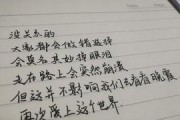 没关系的
大家都会做错选择
会莫名其妙掉眼泪
走在路上会突然崩溃
但这并不影响我们去看看晚霞
再次爱上这个世界